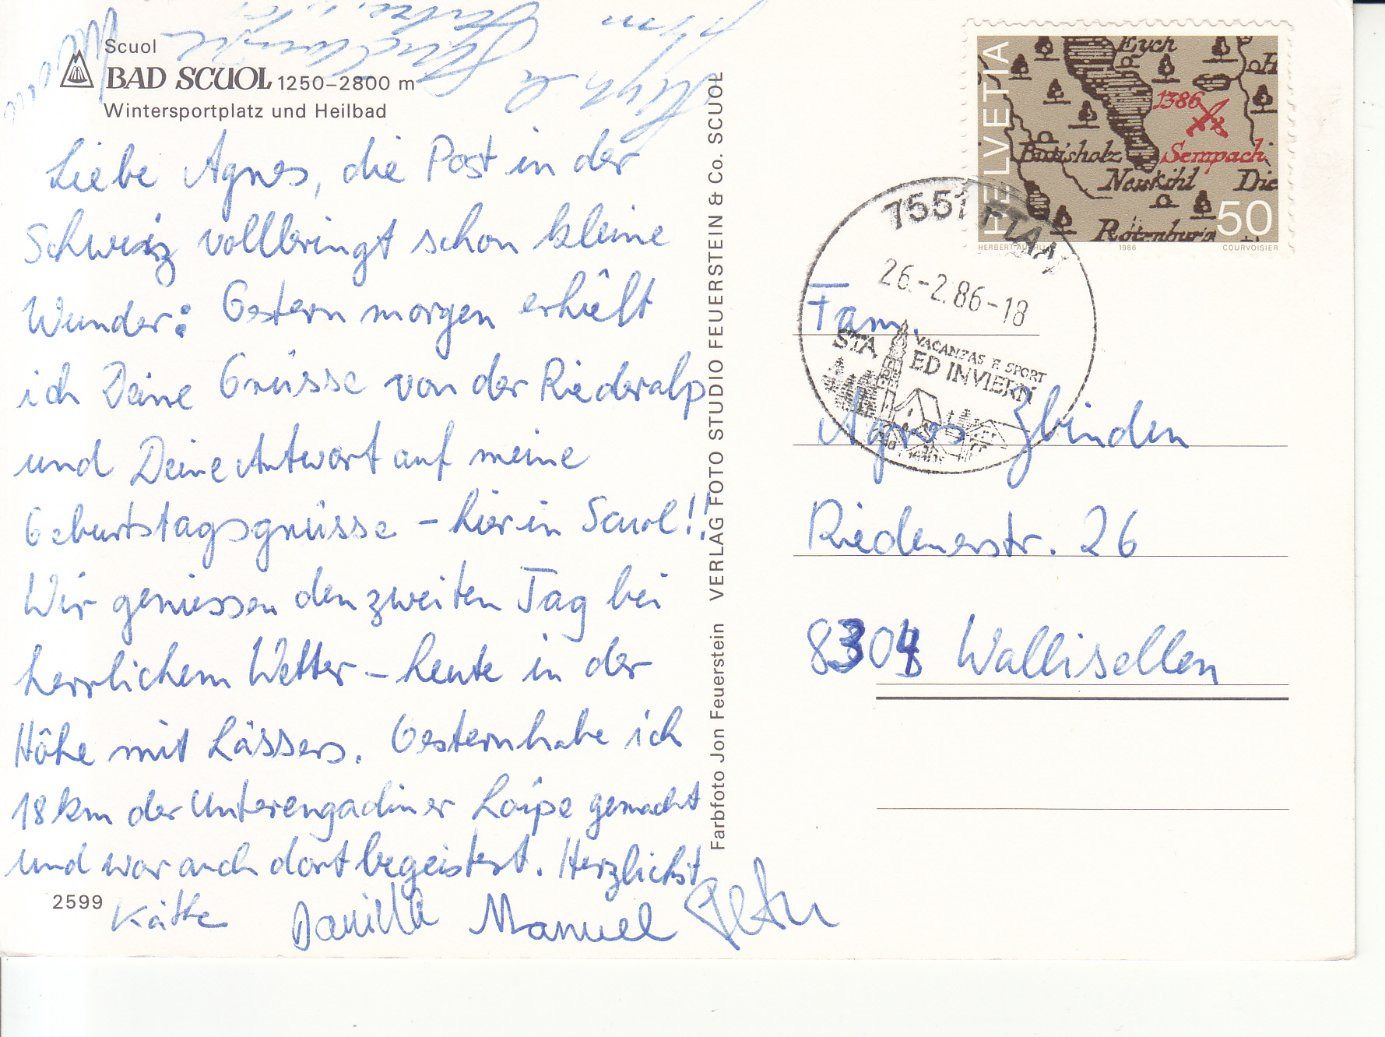 Scuol
BAD SCUOL 1250–2800 m
Wintersportplatz und Heilbad
Liebe Agnes, die Post in der
Schweiz vollbringt schon kleine
Wunder: Gestern morgen erhielt
ich Deine Grüsse von der Riederalp
und Deine Antwort auf meine
Geburtstagsgrüsse – hier in Scuol!!
Wir geniessen den zweiten Tag bei
herrlichem Wetter – heute in der
Höhe mit Lässers. Gestern habe ich
18 km der Unterengadiner Loipe gemacht
und war auch dort begeistert. Herzlichst
2599
Käthe Danielle Manuel Peter
Farbfoto Jon Feuerstein VERLAG FOTO STUDIO FEUERSTEIN & Co. SCUOL
HELVETIA
Eych
1386
Butisholz Sempach
Neukihl Die
Rotenburg
50
1986 COURVOISIER
7551 FTAN
26.-2.86-18
VACANZAS E SPORT
STA ED INVIERN
Fam.
Agnes Zbinden
Riedenerstr. 26
8304 Wallisellen